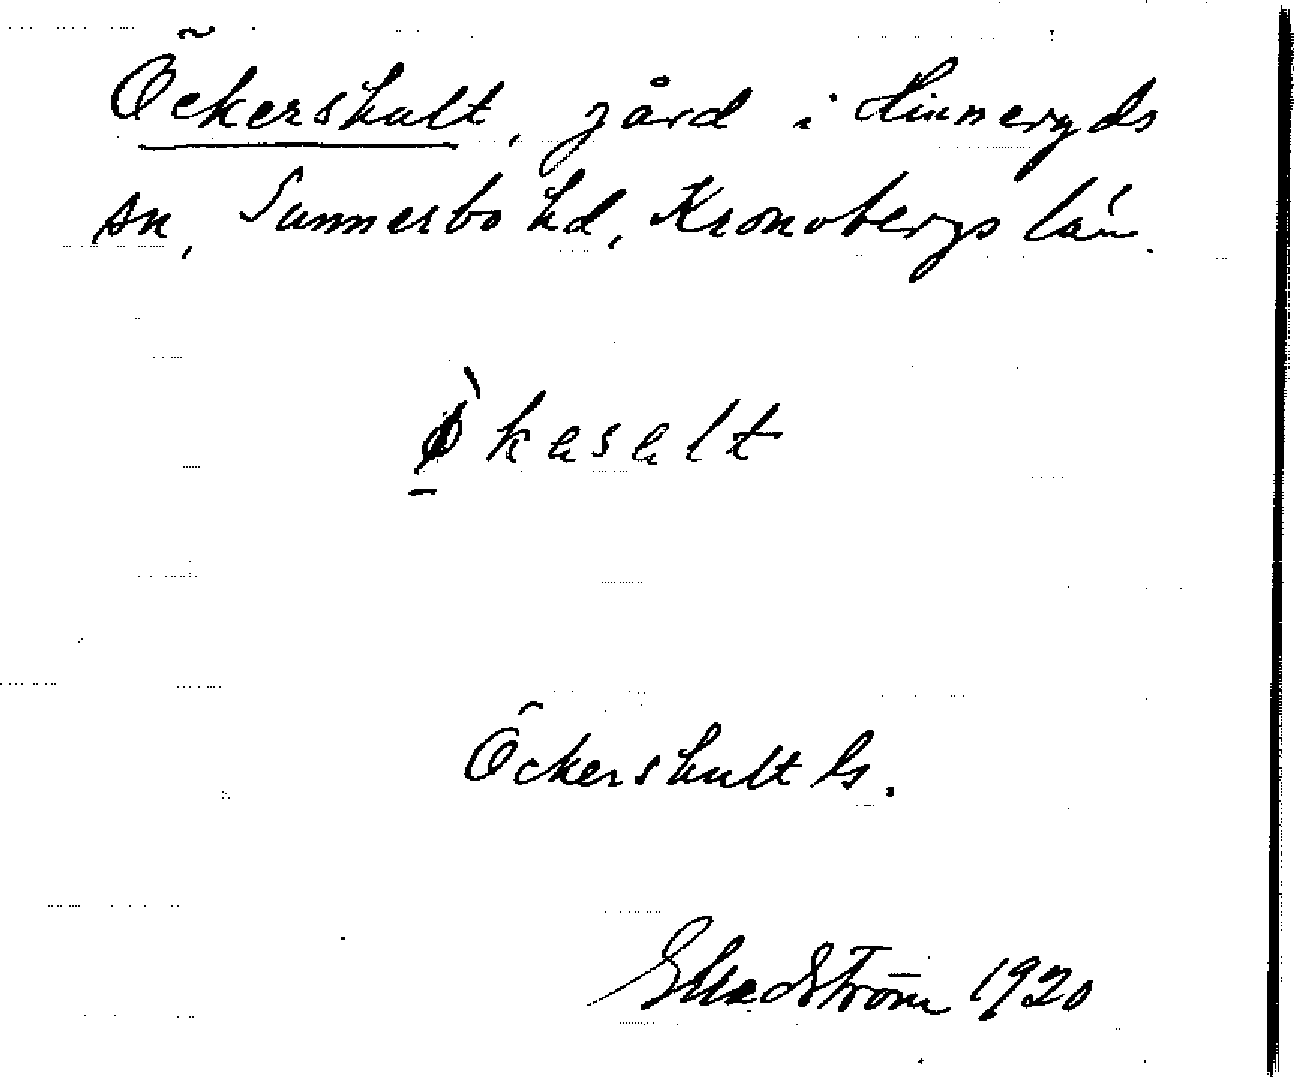 Öckershult, gård i Hinneryds
sn, Sunnerbo hd, Kronobergs län.
ø̀kasalt
Öckershult Gs.
1920